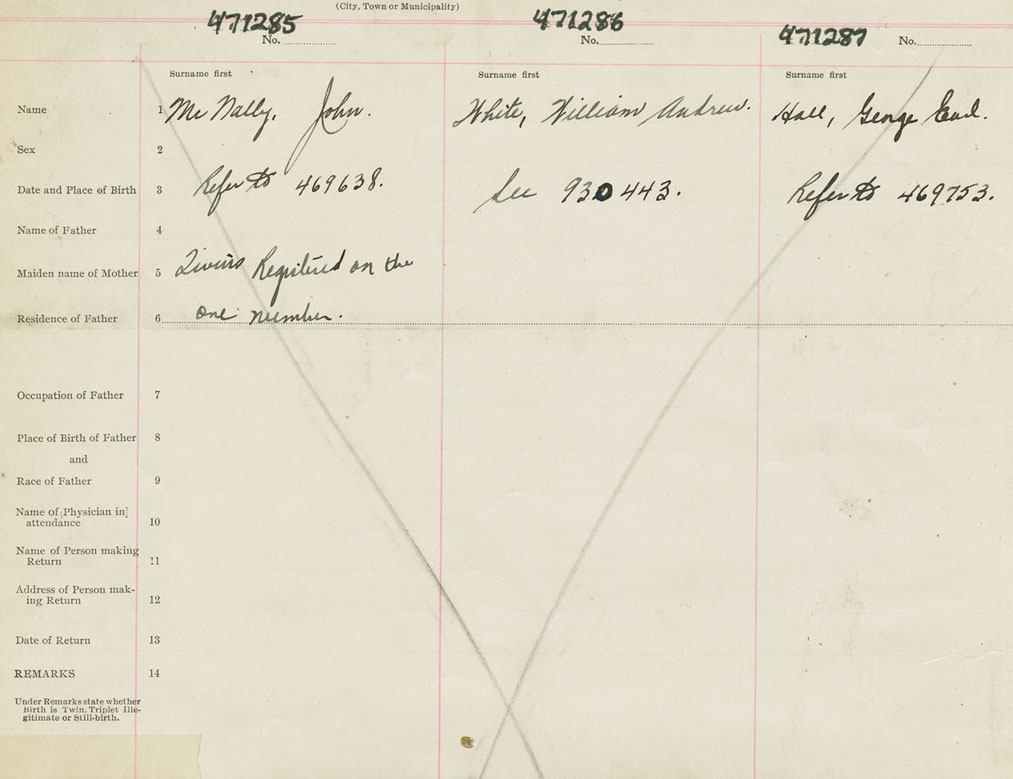 (City, Town or Municipality)
471285 471286 471287
No. No. No.
Surname first Surname first Surname first
Name 1 McNally, John. White, William Andrew. Hall, George Earl.
Sex 2
Date and Place of Birth 3 Refer to 469638. See 930443. Refer to 469753.
Name of Father 4
Maiden name of Mother 5 Twins Registered on the
Residence of Father 6 one number.
Occupation of Father 7
Place of Birth of Father 8
and
Race of Father 9
Name of Physician in]
attendance 10
Name of Person making
Return 11
Address of Person mak-
ing Return 12
Date of Return 13
REMARKS 14
Under Remarks state whether
Birth is Twin. Triplet Ille-
gitimate or Still-birth.